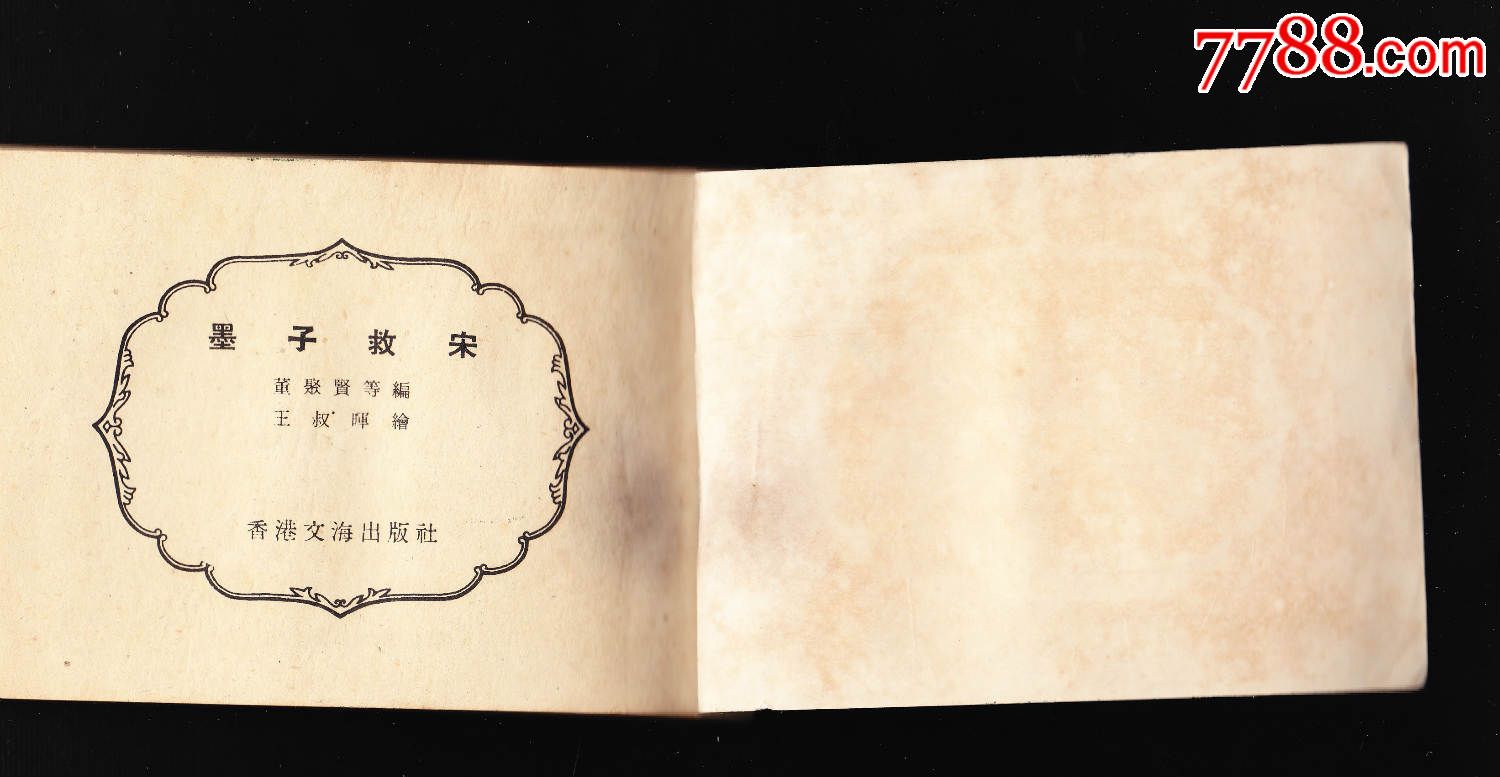 7788.com
墨子救宋
董聚賢等編
王叔暉繪
香港文海出版社